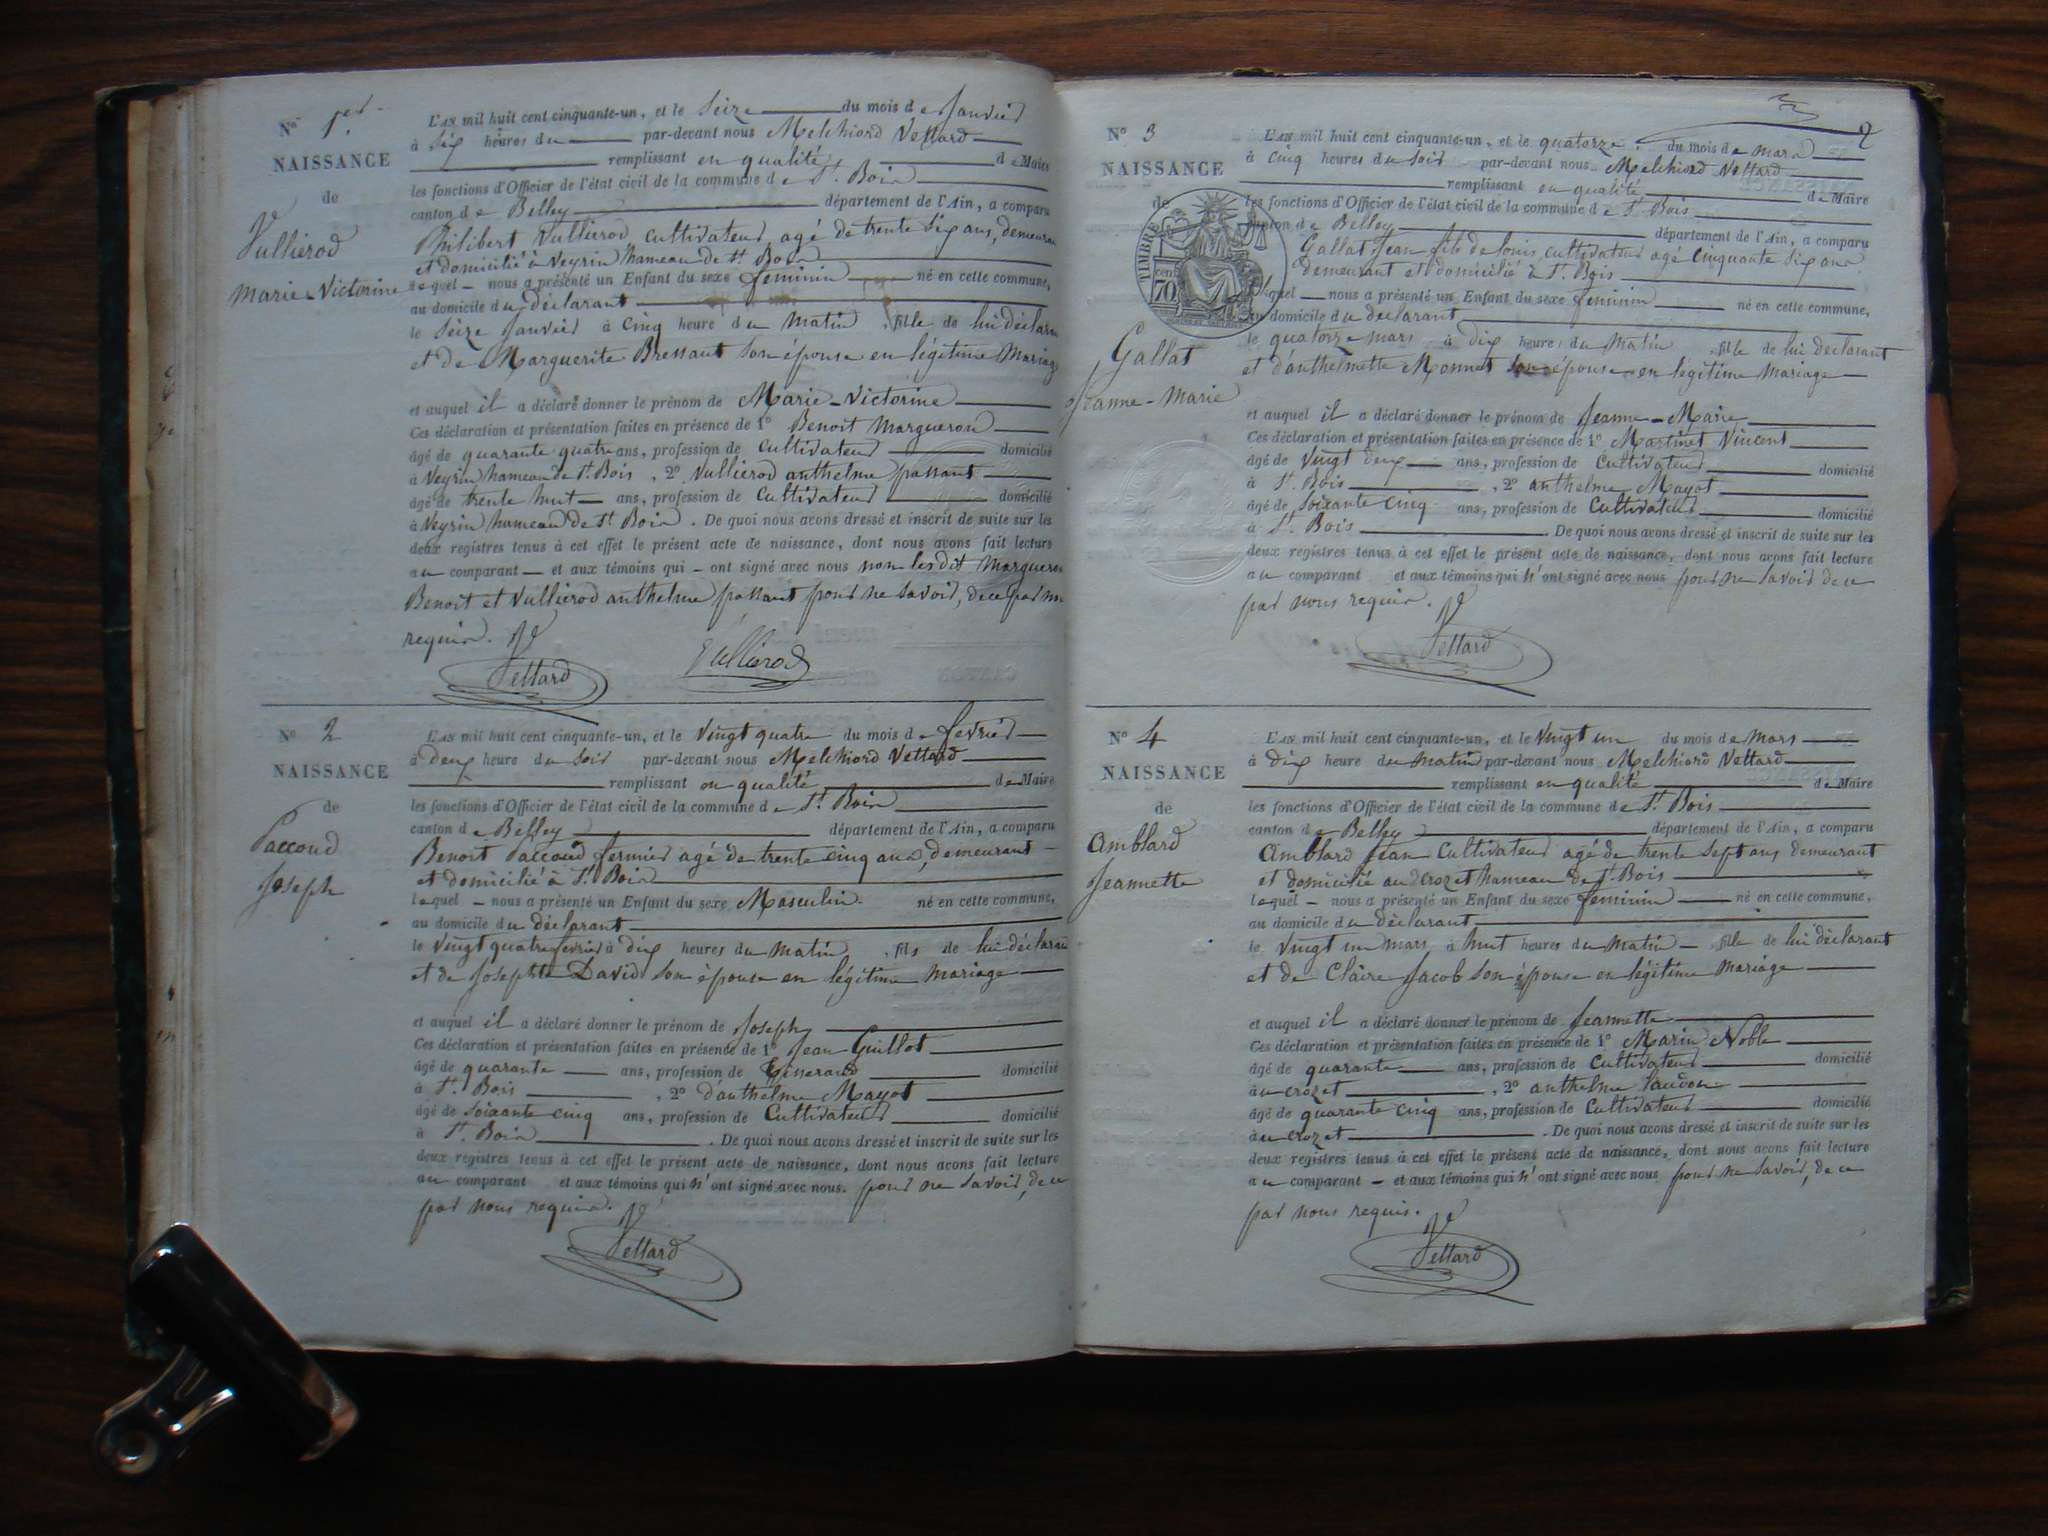 N° 1er
NAISSANCE
de
Vullierod
Marie-Victorine
L'AN mil huit cent cinquante-un, et le Seize du mois de Janvier
à Six heures du par-devant nous Melchiord Vettard
remplissant en qualité de Maire
les fonctions d'Officier de l'état civil de la commune de St. Bois
canton de Belley département de l'Ain, a comparu
Philibert Vullierod cultivateur agé de trente Six ans, demeurant
et domicilié à Veyrin hameau de St. Bois
lequel nous a présenté un Enfant du sexe feminin né en cette commune,
au domicile du déclarant
le Seize Janvier à Cinq heure du Matin, fille de lui déclarant
et de Marguerite Bressaut Son épouse en légitime Mariage
et auquel il a déclaré donner le prénom de Marie-Victorine
Ces déclaration et présentation faites en présence de 1° Benoit Margueron
âgé de quarante quatre ans, profession de Cultivateur domicilié
à Veyrin hameau de St. Bois, 2° Vullierod anthelme passant
âgé de trente huit ans, profession de Cultivateur domicilié
à Veyrin hameau de St. Bois. De quoi nous avons dressé et inscrit de suite sur les
deux registres tenus à cet effet le présent acte de naissance, dont nous avons fait lecture
au comparant et aux témoins qui ont signé avec nous non lesdit Margueron
Benoit et Vullierod anthelme passant pour ne Savoir, de ce par nous
requis.
Vettard Vullierod
N° 2
NAISSANCE
de
Paccoud
Joseph
L'AN mil huit cent cinquante-un, et le Vingt quatre du mois de fevrier
à Deux heure du Soir par-devant nous Melchiord Vettard
remplissant en qualité de Maire
les fonctions d'Officier de l'état civil de la commune de St. Bois
canton de Belley département de l'Ain, a comparu
Benoit Paccoud fermier agé de trente cinq ans, demeurant
et domicilié à St. Bois
lequel nous a présenté un Enfant du sexe Masculin né en cette commune,
au domicile du déclarant
le Vingt quatre fevrier à Dix heures du Matin, fils de lui déclarant
et de Josephte David Son épouse en légitime Mariage
et auquel il a déclaré donner le prénom de Joseph
Ces déclaration et présentation faites en présence de 1° Jean Guillot
âgé de quarante ans, profession de Tisserand domicilié
à St. Bois, 2° d'anthelme Mayot
âgé de Soixante cinq ans, profession de Cultivateur domicilié
à St. Bois. De quoi nous avons dressé et inscrit de suite sur les
deux registres tenus à cet effet le présent acte de naissance, dont nous avons fait lecture
au comparant et aux témoins qui n'ont signé avec nous. pour ne Savoir, de ce
par nous requis.
Vettard
2
N° 3
NAISSANCE
de
TIMBRE
70 cen
Gallat
Jeanne-Marie
L'AN mil huit cent cinquante-un, et le quatorze du mois de mars
à Cinq heures du Soir par-devant nous Melchiord Vettard
remplissant en qualité de Maire
les fonctions d'Officier de l'état civil de la commune de St. Bois
canton de Belley département de l'Ain, a comparu
Gallat Jean fils de Louis cultivateur agé cinquante Six ans
demeurant et domicilié à St. Bois
lequel nous a présenté un Enfant du sexe feminin né en cette commune,
au domicile du déclarant
le quatorze mars à dix heures du Matin, fille de lui déclarant
et d'anthelmette Monnet Son épouse en légitime Mariage
et auquel il a déclaré donner le prénom de Jeanne-Marie
Ces déclaration et présentation faites en présence de 1° Martinet Vincent
âgé de Vingt deux ans, profession de Cultivateur domicilié
à St. Bois, 2° anthelme Mayot
âgé de Soixante Cinq ans, profession de Cultivateur domicilié
à St. Bois. De quoi nous avons dressé et inscrit de suite sur les
deux registres tenus à cet effet le présent acte de naissance, dont nous avons fait lecture
au comparant et aux témoins qui n'ont signé avec nous pour ne Savoir de ce
par nous requis.
Vettard
N° 4
NAISSANCE
de
Amblard
Jeannette
L'AN mil huit cent cinquante-un, et le Vingt un du mois de Mars
à Dix heure du Matin par-devant nous Melchiord Vettard
remplissant en qualité de Maire
les fonctions d'Officier de l'état civil de la commune de St. Bois
canton de Belley département de l'Ain, a comparu
Amblard Jean Cultivateur agé de trente Sept ans demeurant
et domicilié au Crozet hameau de St. Bois
lequel nous a présenté un Enfant du sexe feminin né en cette commune,
au domicile du déclarant
le Vingt un Mars à huit heures du Matin, fille de lui déclarant
et de Claire Jacob Son épouse en légitime Mariage
et auquel il a déclaré donner le prénom de Jeannette
Ces déclaration et présentation faites en présence de 1° Marin Noble
âgé de quarante ans, profession de Cultivateur domicilié
au Crozet, 2° anthelme
âgé de quarante Cinq ans, profession de Cultivateur domicilié
au Crozet. De quoi nous avons dressé et inscrit de suite sur les
deux registres tenus à cet effet le présent acte de naissance, dont nous avons fait lecture
au comparant et aux témoins qui n'ont signé avec nous pour ne Savoir, de ce
par nous requis.
Vettard